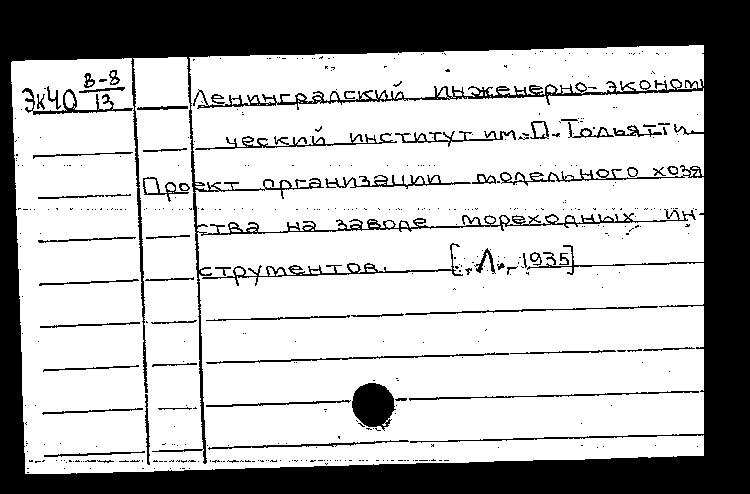 Эк40 В-8/13
Ленинградский инженерно-эконом
ческий институт им. П. Тольятти.
Проект организации модельного хозя
ства на заводе мореходных ин-
струментов. [Л., 1935]